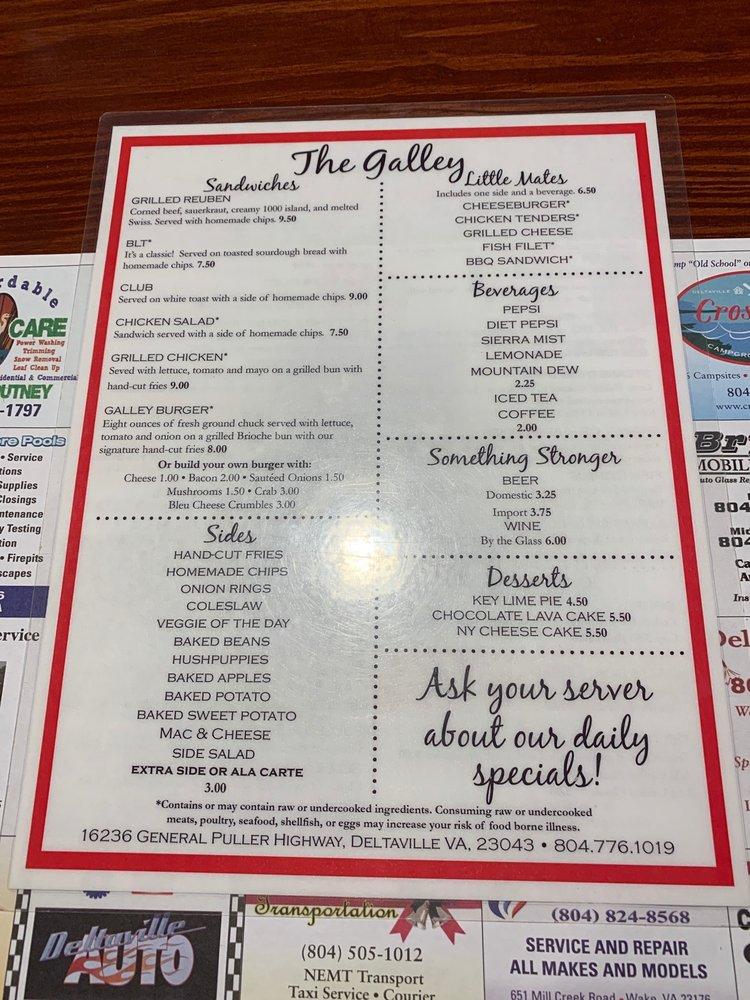 The Galley
Sandwiches
GRILLED REUBEN
Corned beef, sauerkraut, creamy 1000 island, and melted
Swiss. Served with homemade chips. 9.50
BLT*
It's a classic! Served on toasted sourdough bread with
homemade chips. 7.50
CLUB
Served on white toast with a side of homemade chips. 9.00
CHICKEN SALAD*
Sandwich served with a side of homemade chips. 7.50
GRILLED CHICKEN*
Seved with lettuce, tomato and mayo on a grilled bun with
hand-cut fries 9.00
GALLEY BURGER*
Eight ounces of fresh ground chuck served with lettuce,
tomato and onion on a grilled Brioche bun with our
signature hand-cut fries 8.00
Or build your own burger with:
Cheese 1.00 • Bacon 2.00 • Sautéed Onions 1.50
Mushrooms 1.50 • Crab 3.00
Bleu Cheese Crumbles 3.00
Sides
HAND-CUT FRIES
HOMEMADE CHIPS
ONION RINGS
COLESLAW
VEGGIE OF THE DAY
BAKED BEANS
HUSHPUPPIES
BAKED APPLES
BAKED POTATO
BAKED SWEET POTATO
MAC & CHEESE
SIDE SALAD
EXTRA SIDE OR ALA CARTE
3.00
Little Mates
Includes one side and a beverage. 6.50
CHEESEBURGER*
CHICKEN TENDERS*
GRILLED CHEESE
FISH FILET*
BBQ SANDWICH*
Beverages
PEPSI
DIET PEPSI
SIERRA MIST
LEMONADE
MOUNTAIN DEW
2.25
ICED TEA
COFFEE
2.00
Something Stronger
BEER
Domestic 3.25
Import 3.75
WINE
By the Glass 6.00
Desserts
KEY LIME PIE 4.50
CHOCOLATE LAVA CAKE 5.50
NY CHEESE CAKE 5.50
Ask your server
about our daily
specials!
*Contains or may contain raw or undercooked ingredients. Consuming raw or undercooked
meats, poultry, seafood, shellfish, or eggs may increase your risk of food borne illness.
16236 GENERAL PULLER HIGHWAY, DELTAVILLE VA, 23043 • 804.776.1019
CARE
Power Washing
Trimming
Snow Removal
Leaf Clean Up
-1797
Pools
• Service
Supplies
Testing
• Firepits
"Old School"
DELTAVILLE
Campsites •
804
www.
804
804
Deltaville
AUTO
Transportation
(804) 505-1012
NEMT Transport
Taxi Service • Courier
(804) 824-8568
SERVICE AND REPAIR
ALL MAKES AND MODELS
651 Mill Creek Road - Wake, VA 23176